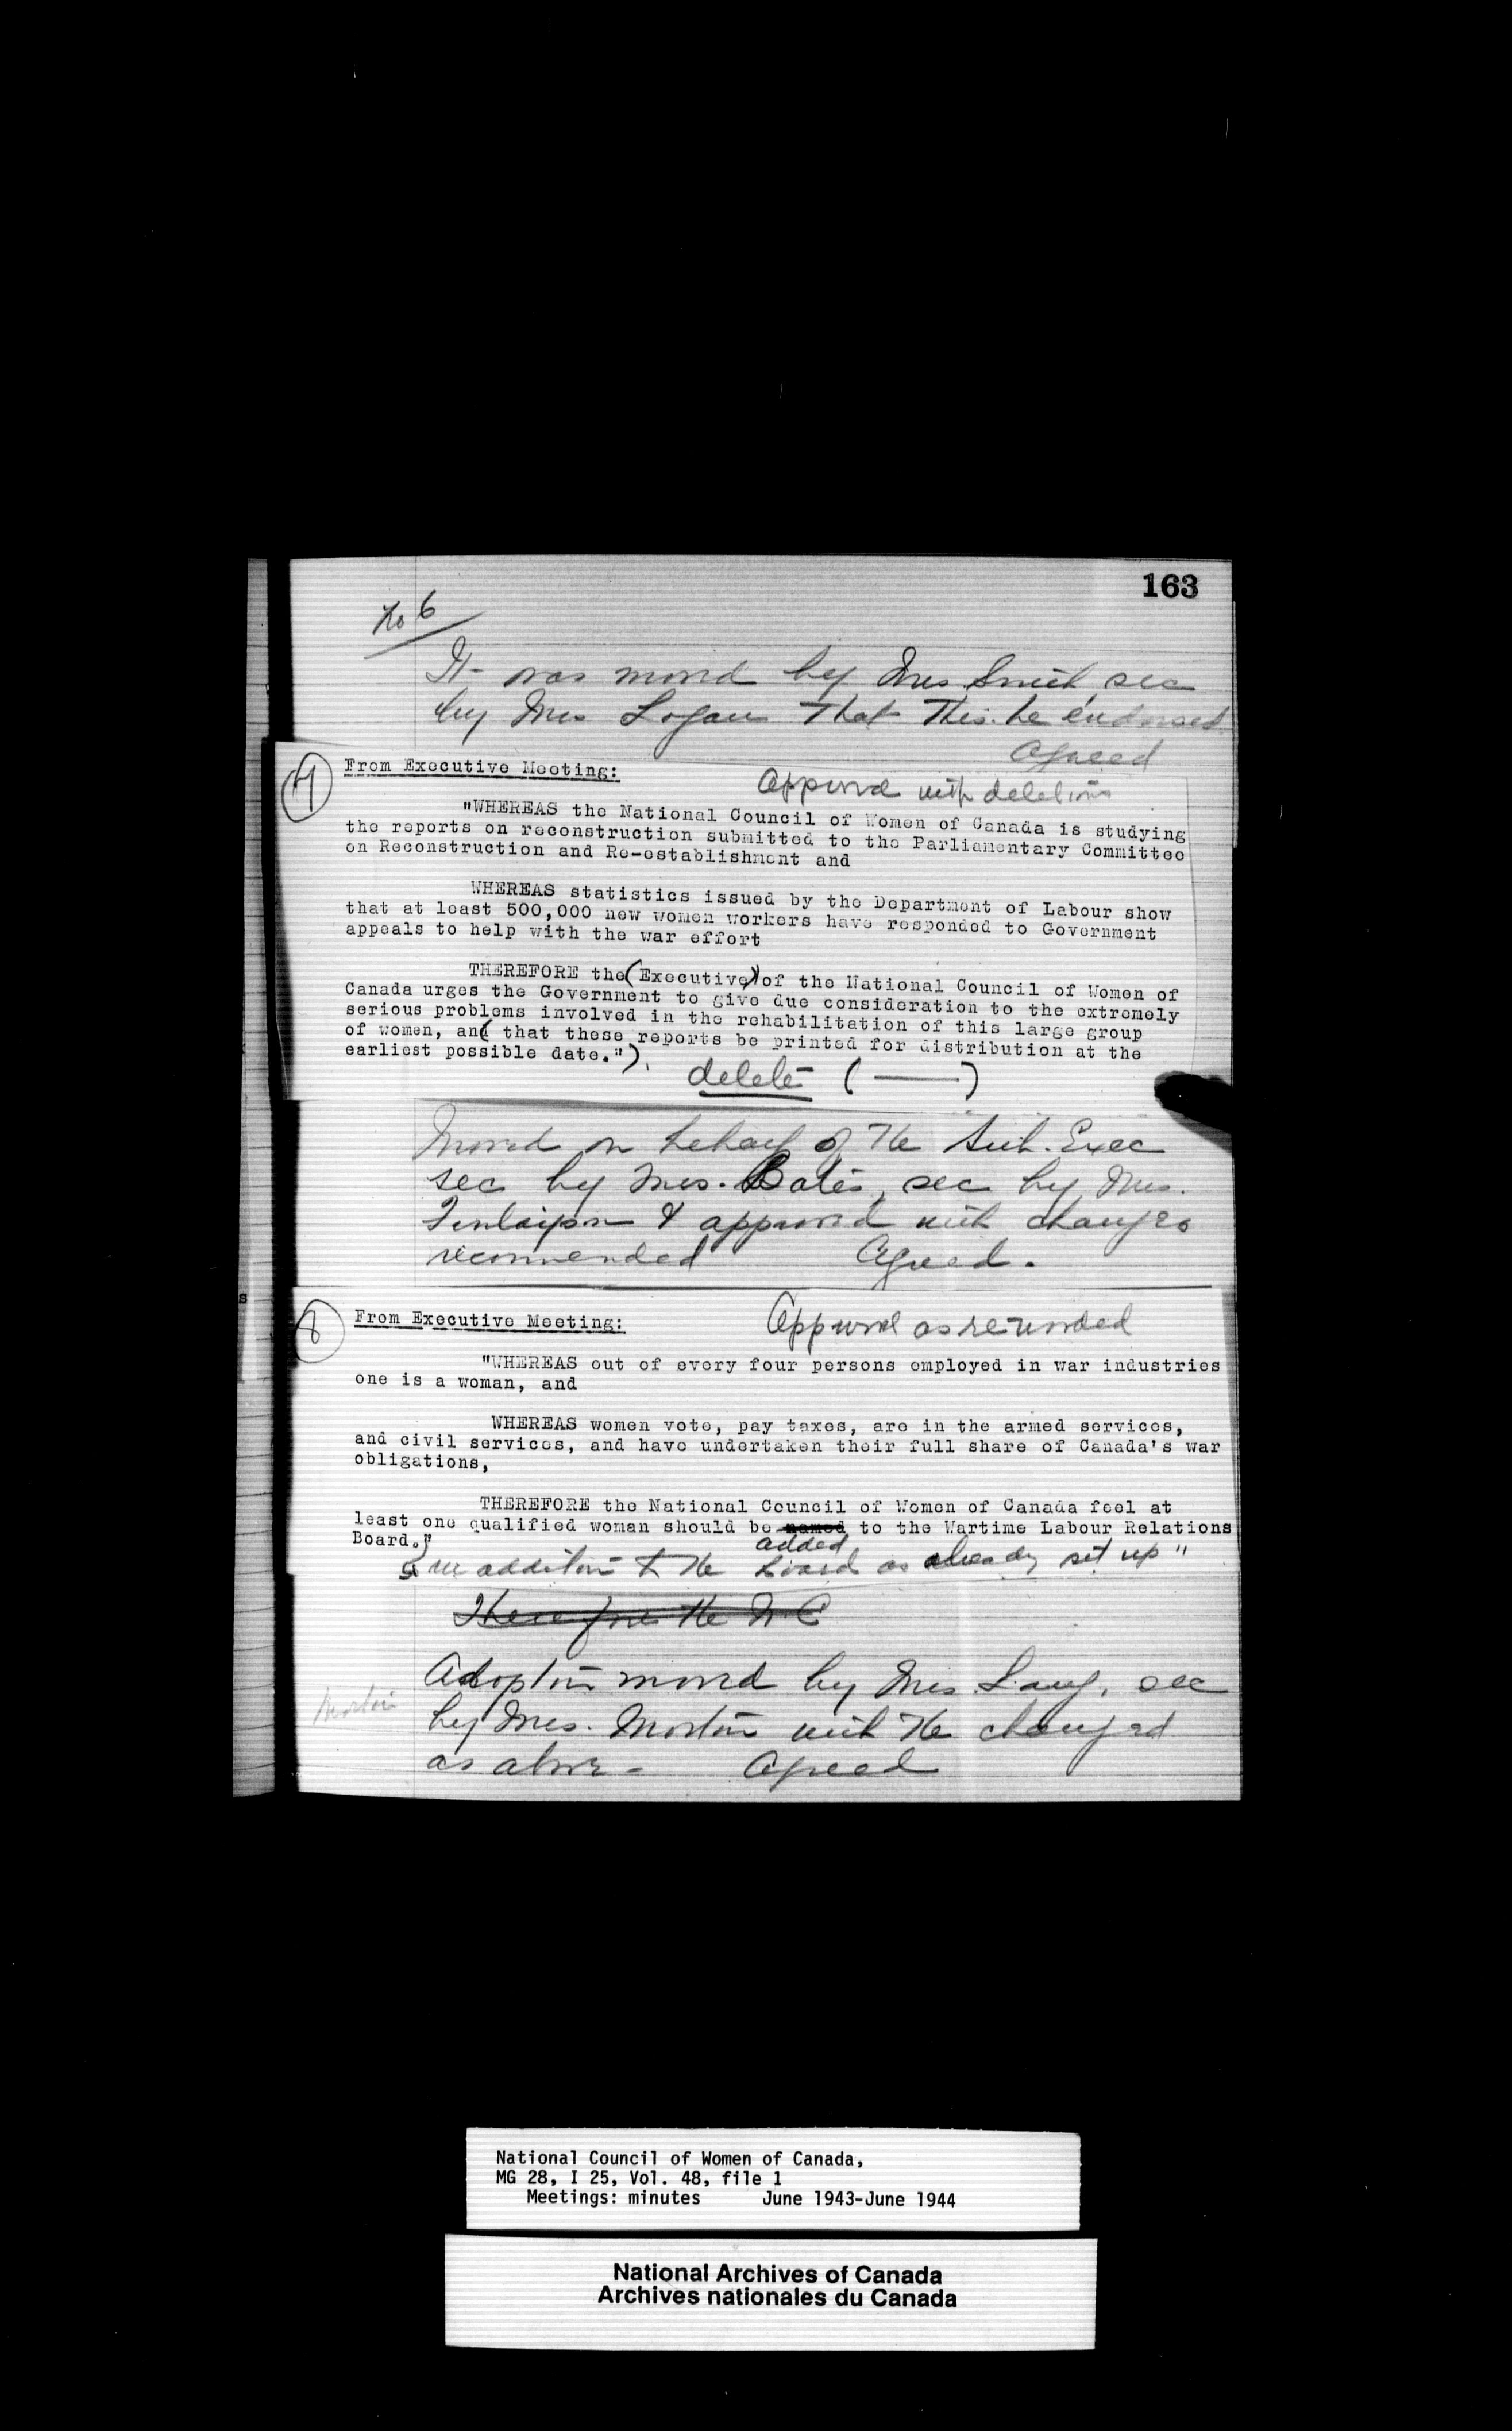 163
No 6
It was moved by Mrs Smith, sec
by Mrs Logan that this be endorsed
Agreed
7
From Executive Meeting:
Approved with deletions
"WHEREAS the National Council of Women of Canada is studying
the reports on reconstruction submitted to the Parliamentary Committee
on Reconstruction and Re-establishment and
WHEREAS statistics issued by the Department of Labour show
that at least 500,000 new women workers have responded to Government
appeals to help with the war effort
THEREFORE the (Executive) of the National Council of Women of
Canada urges the Government to give due consideration to the extremely
serious problems involved in the rehabilitation of this large group
of women, and (that these reports be printed for distribution at the
earliest possible date.").
delete ( — )
Moved on behalf of the Sub. Exec
sec by Mrs. Bates, sec by Mrs.
Finlayson & approved with changes
recommended Agreed.
8
From Executive Meeting:
Approved as reworded
"WHEREAS out of every four persons employed in war industries
one is a woman, and
WHEREAS women vote, pay taxes, are in the armed services,
and civil services, and have undertaken their full share of Canada's war
obligations,
THEREFORE the National Council of Women of Canada feel at
least one qualified woman should be named to the Wartime Labour Relations
added
Board."
in addition to the board as already set up"
Therefore the N C
Adoption moved by Mrs. Lang, sec
Morton
by Mrs. Morton with the changed
as above - Agreed
s
National Council of Women of Canada,
MG 28, I 25, Vol. 48, file 1
Meetings: minutes June 1943-June 1944
National Archives of Canada
Archives nationales du Canada